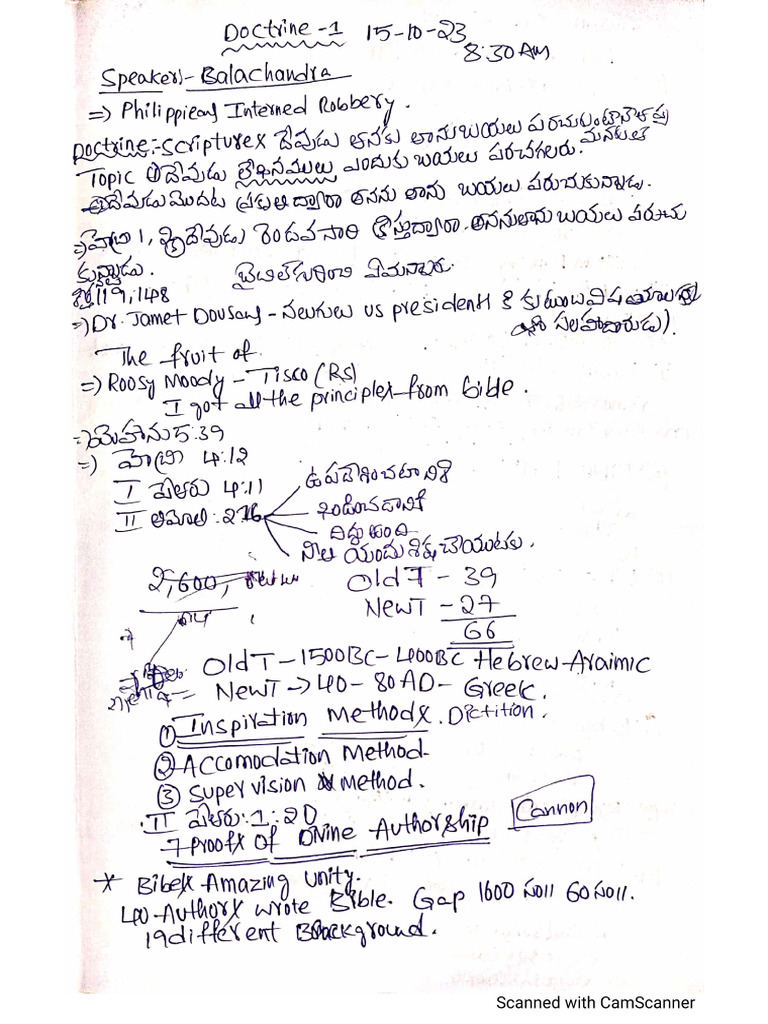 Doctrine -1 15-10-23
8:30 Am
Speaker:- Balachandra
=> Philippieans Interned Robbery.
Doctrine:- Scripturex దేవుడు తనకు తానుబయలు
Topic దేవుడు ఎందుకు బయలు పరచగలరు. మనకు
దేవుడు మొదట ప్రకృతి ద్వారా తనను తాను బయలు పరుచుకున్నాడు.
=> హెబ్రి 1, దేవుడు రెండవసారి క్రీస్తుద్వారా తననుతాను బయలు పరుచు
కున్నాడు.
119,148
=> Dr. Jamet Dousons - నలుగులు us president కి కుటుంబ విషయాల
సలహాదారుడు).
The fruit of.
=> Roosy Moody - Tisco (Rs)
I got all the principlex from bible.
=> యెహాను 5:39
=> హెబ్రి 4:12
I పేతురు 4:11
II తిమోతి : 2:16
ఉపదేశించటానికి
ఖండించడానికి
దిద్దుటంది
నీతి యందు శిక్ష చేయుటకు.
2,600,
Old T - 39
NewT - 27
66
Old T - 1500BC - 400BC Hebrew-Araimic
NewT -> 40 - 80 AD - Greek.
① Inspiration Methodx. Dictition.
② Accomodation Method-
③ Supervision method.
II పేతురు: 1:20
Cannon
7 Proofx Of Divine Authorship
* Bibelx Amazing Unity.
40-Authorx wrote Bible. Gap 1600 సం॥ 60 సం॥.
19 different Background.
Scanned with CamScanner